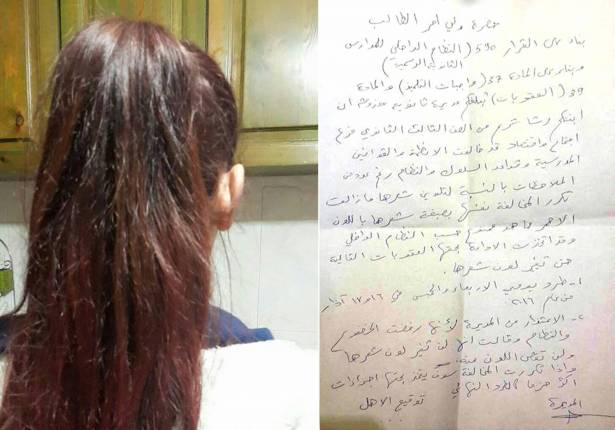 حضرة ولي أمر الطالب
بناء على القرار 590 (النظام الداخلي للمدارس
الثانوية الرسمية)
وبناء على المادة 37 (واجبات التلميذ) والمادة
39 (العقوبات) تبلغكم مديرة ثانوية أن
ابنتكم رشا شريم من الصف الثالث الثانوي فرع
اجتماع واقتصاد قد خالفت الأنظمة والقوانين
المدرسية وقواعد السلوك والنظام رغم
الملاحظات بالنسبة لتلوين شعرها ما زالت
تكرر المخالفة نفسها بصبغة شعرها باللون
الأحمر حسب النظام الداخلي
وقد اتخذت الادارة بحقها العقوبات التالية
حتى تغير لون شعرها.
1- طرد يومي الاربعاء والخميس في 16 و 17 آذار
من عام 2016
2- الاعتذار من المديرة لأنها رفضت الخضوع
والنظام وقالت انها لن تغير لون شعرها
ولن تقص اللون منه.
واذا تكررت المخالفة سوف يتخذ بحقها اجراءات
أكثر حزما كالطرد النهائي
توقيع الاهل
المديرة